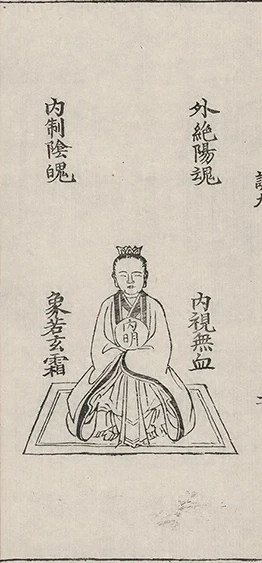 外絶陽魂
内制陰魄
内視無血
象若玄霜
内明